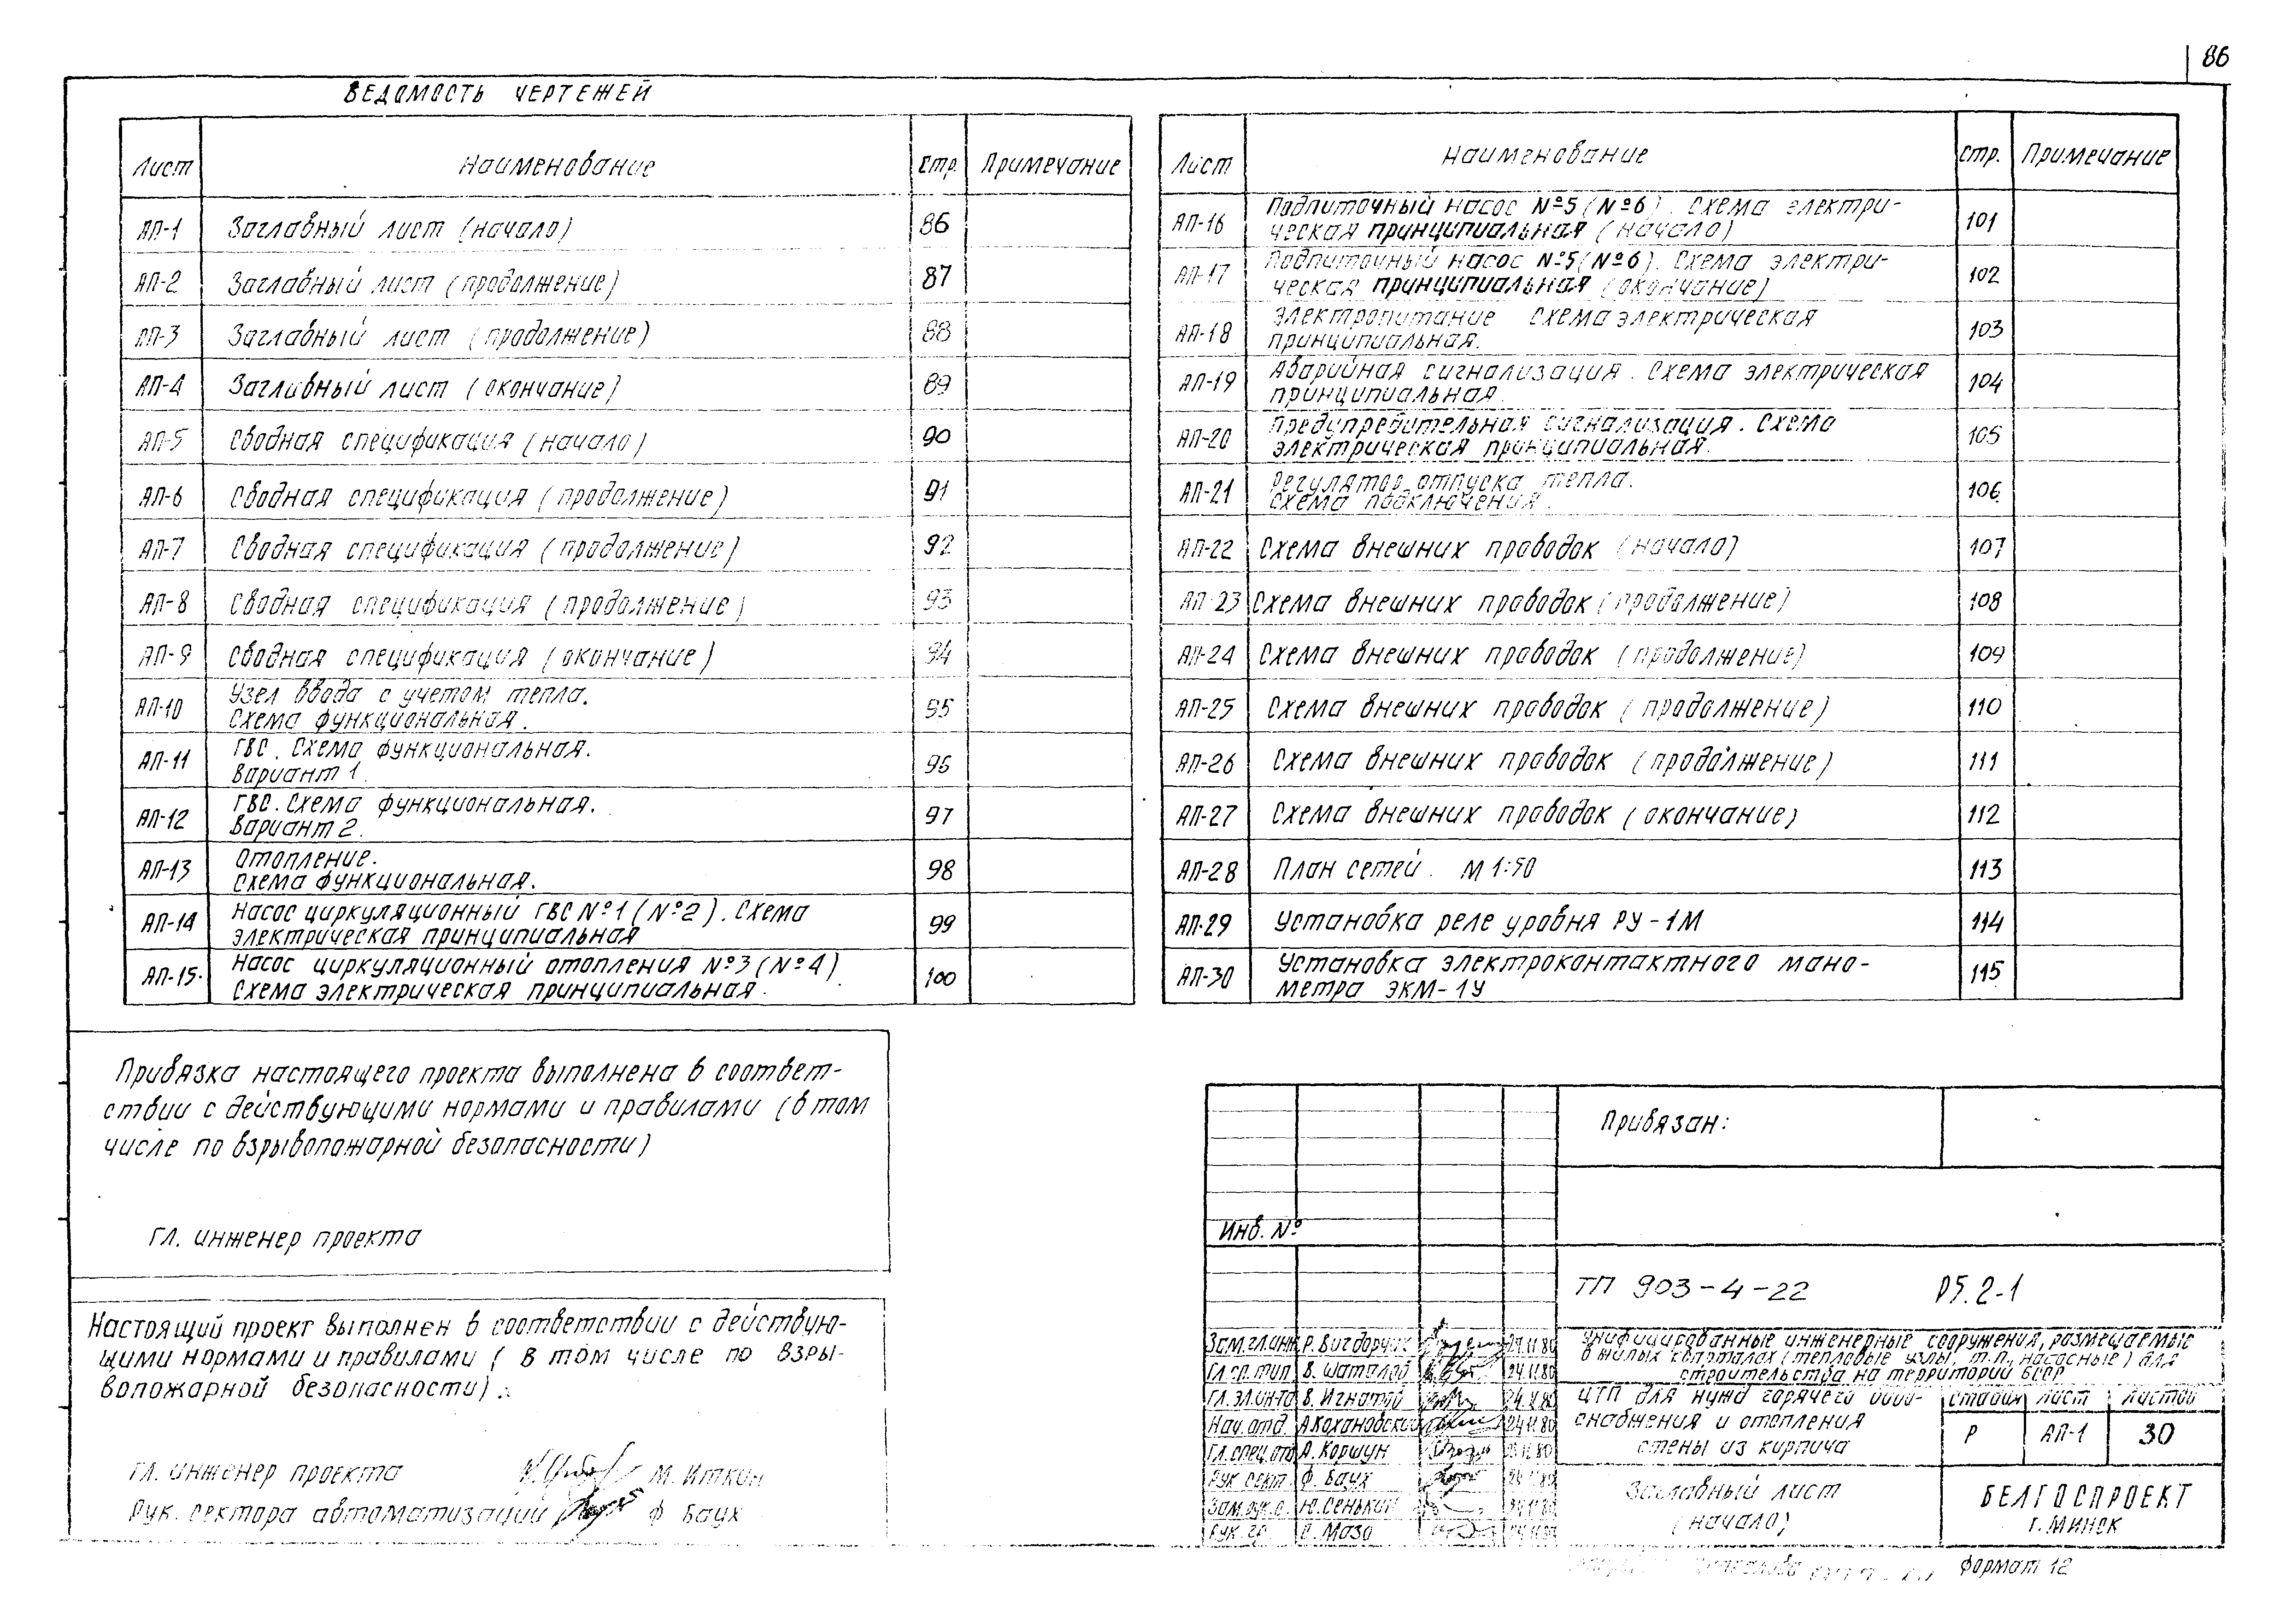 86
ВЕДОМОСТЬ ЧЕРТЕЖЕЙ
Лист Наименование Стр. Примечание
АП-1 Заглавный лист (начало) 86
АП-2 Заглавный лист (продолжение) 87
АП-3 Заглавный лист (продолжение) 88
АП-4 Заглавный лист (окончание) 89
АП-5 Сводная спецификация (начало) 90
АП-6 Сводная спецификация (продолжение) 91
АП-7 Сводная спецификация (продолжение) 92
АП-8 Сводная спецификация (продолжение) 93
АП-9 Сводная спецификация (окончание) 94
АП-10 Узел ввода с учетом тепла.
Схема функциональная. 95
АП-11 ГВС. Схема функциональная.
Вариант 1. 96
АП-12 ГВС. Схема функциональная.
Вариант 2. 97
АП-13 Отопление.
Схема функциональная. 98
АП-14 Насос циркуляционный ГВС №1 (№2). Схема
электрическая принципиальная 99
АП-15 Насос циркуляционный отопления №3 (№4)
Схема электрическая принципиальная. 100
Лист Наименование Стр. Примечание
АП-16 Подпиточный насос №5 (№6). Схема электри-
ческая принципиальная (начало) 101
АП-17 Подпиточный насос №5 (№6). Схема электри-
ческая принципиальная (окончание) 102
АП-18 Электропитание Схема электрическая
принципиальная. 103
АП-19 Аварийная сигнализация. Схема электрическая
принципиальная. 104
АП-20 Предупредительная сигнализация. Схема
электрическая принципиальная. 105
АП-21 Регулятор отпуска тепла.
Схема подключения. 106
АП-22 Схема внешних проводок (начало) 107
АП-23 Схема внешних проводок (продолжение) 108
АП-24 Схема внешних проводок (продолжение) 109
АП-25 Схема внешних проводок (продолжение) 110
АП-26 Схема внешних проводок (продолжение) 111
АП-27 Схема внешних проводок (окончание) 112
АП-28 План сетей. М 1:50 113
АП-29 Установка реле уровня РУ-1М 114
АП-30 Установка электроконтактного мано-
метра ЭКМ-1У 115
Привязка настоящего проекта выполнена в соответ-
ствии с действующими нормами и правилами (в том
числе по взрывопожарной безопасности)
Гл. инженер проекта
Настоящий проект выполнен в соответствии с действую-
щими нормами и правилами (в том числе по взры-
вопожарной безопасности).
Гл. инженер проекта М. Иткин
Рук. сектора автоматизации Ф Баух
Привязан:
Инв. №
ТП 903-4-22 Р5.2-1
Зам.гл.инж Р. Вигдорчик 24.11.80
В. Шаталов 24.11.80
В. Игнатов 24.11.80
Нач. отд. А.Кохановский 24.11.80
Гл. спец. отд А. Коршун
Рук сект. Ф. Баух
Ю. Сенькин
Рук. гр. Мазо
Унифицированные инженерные сооружения, размещаемые
в жилых кварталах (тепловые узлы, т.п., насосные) для
строительства на территории БССР
ЦТП для нужд горячего водо-
снабжения и отопления
стены из кирпича
стадия лист листов
Р АП-1 30
Заглавный лист
(начало)
БЕЛГОСПРОЕКТ
г. МИНСК
Формат 12